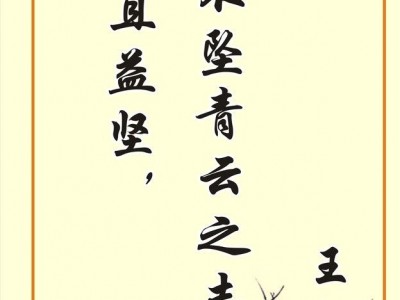 且益坚，
坠青云之
王